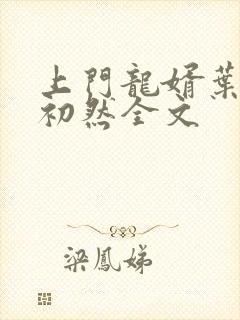 上門龍婿葉
初然全文
梁鳳娣